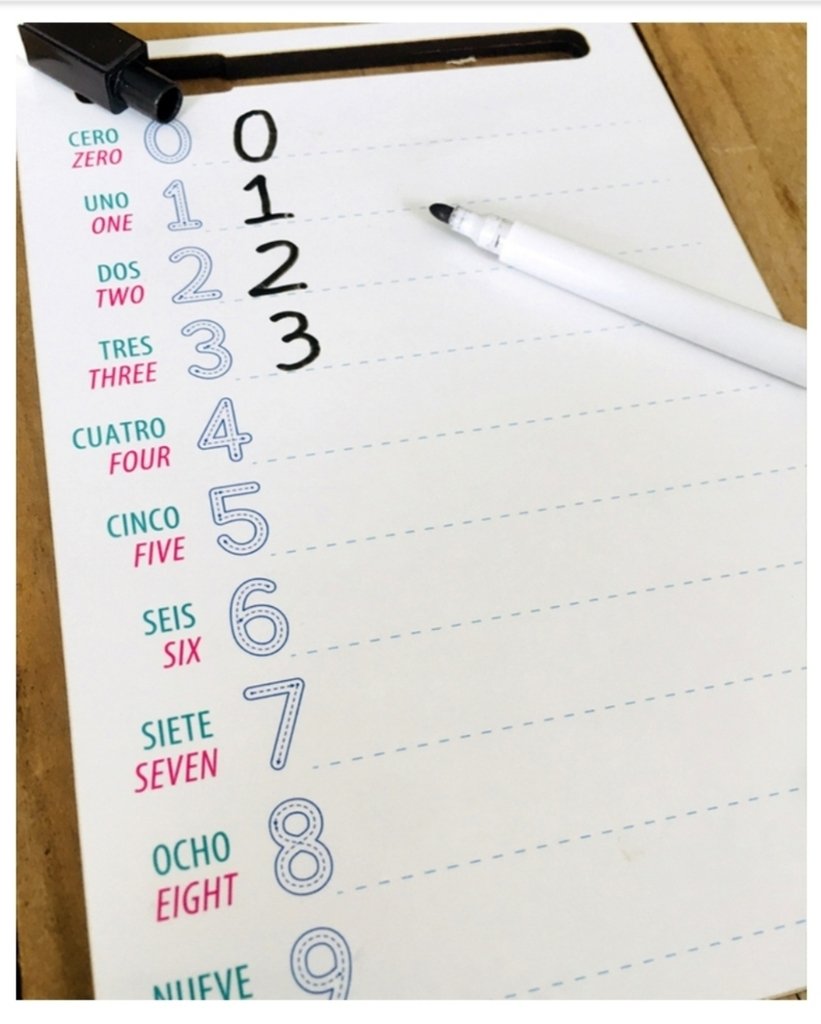 CERO 0 0
ZERO
UNO 1 1
ONE
DOS 2 2
TWO
TRES 3 3
THREE
CUATRO 4
FOUR
CINCO 5
FIVE
SEIS 6
SIX
SIETE 7
SEVEN
OCHO 8
EIGHT
NUEVE 9